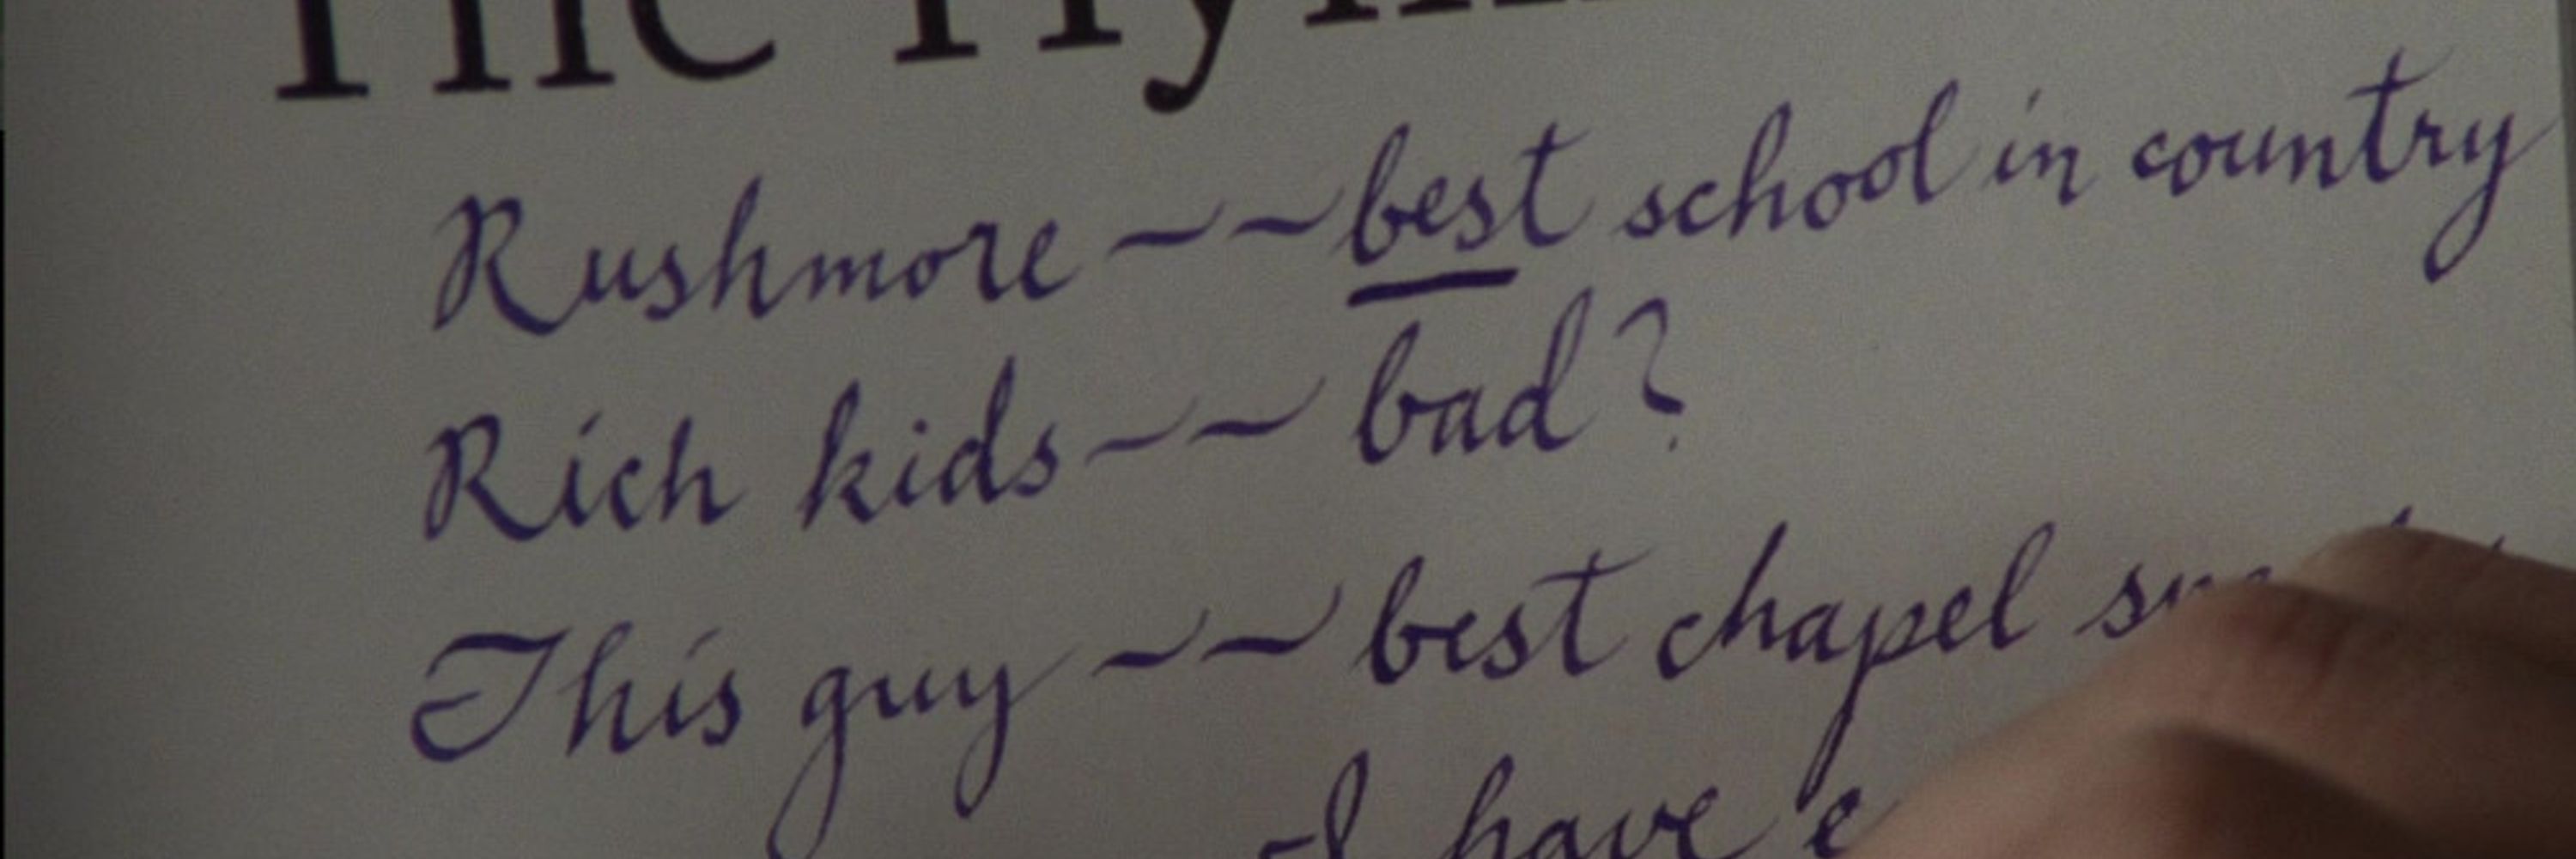 The
Rushmore -- best school in country
Rich kids -- bad?
This guy -- best chapel
I have